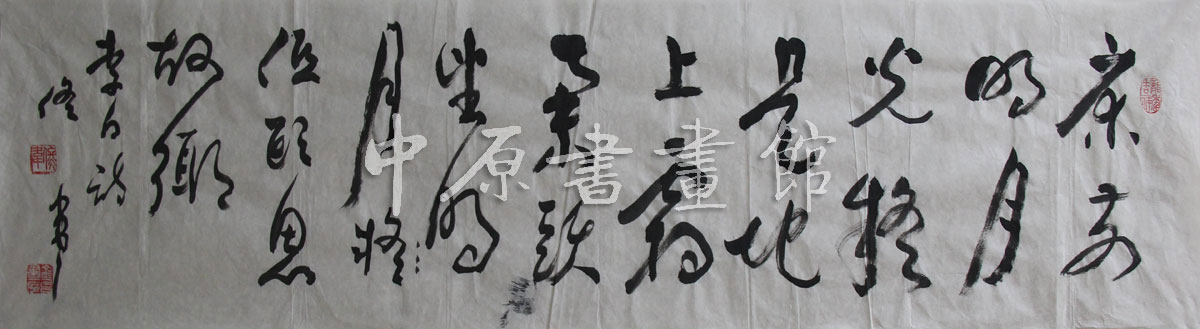 床前
明月
光疑
是地
上霜
舉頭
望明
月疑
低頭思
故鄉
李白詩
書
中原書畫館